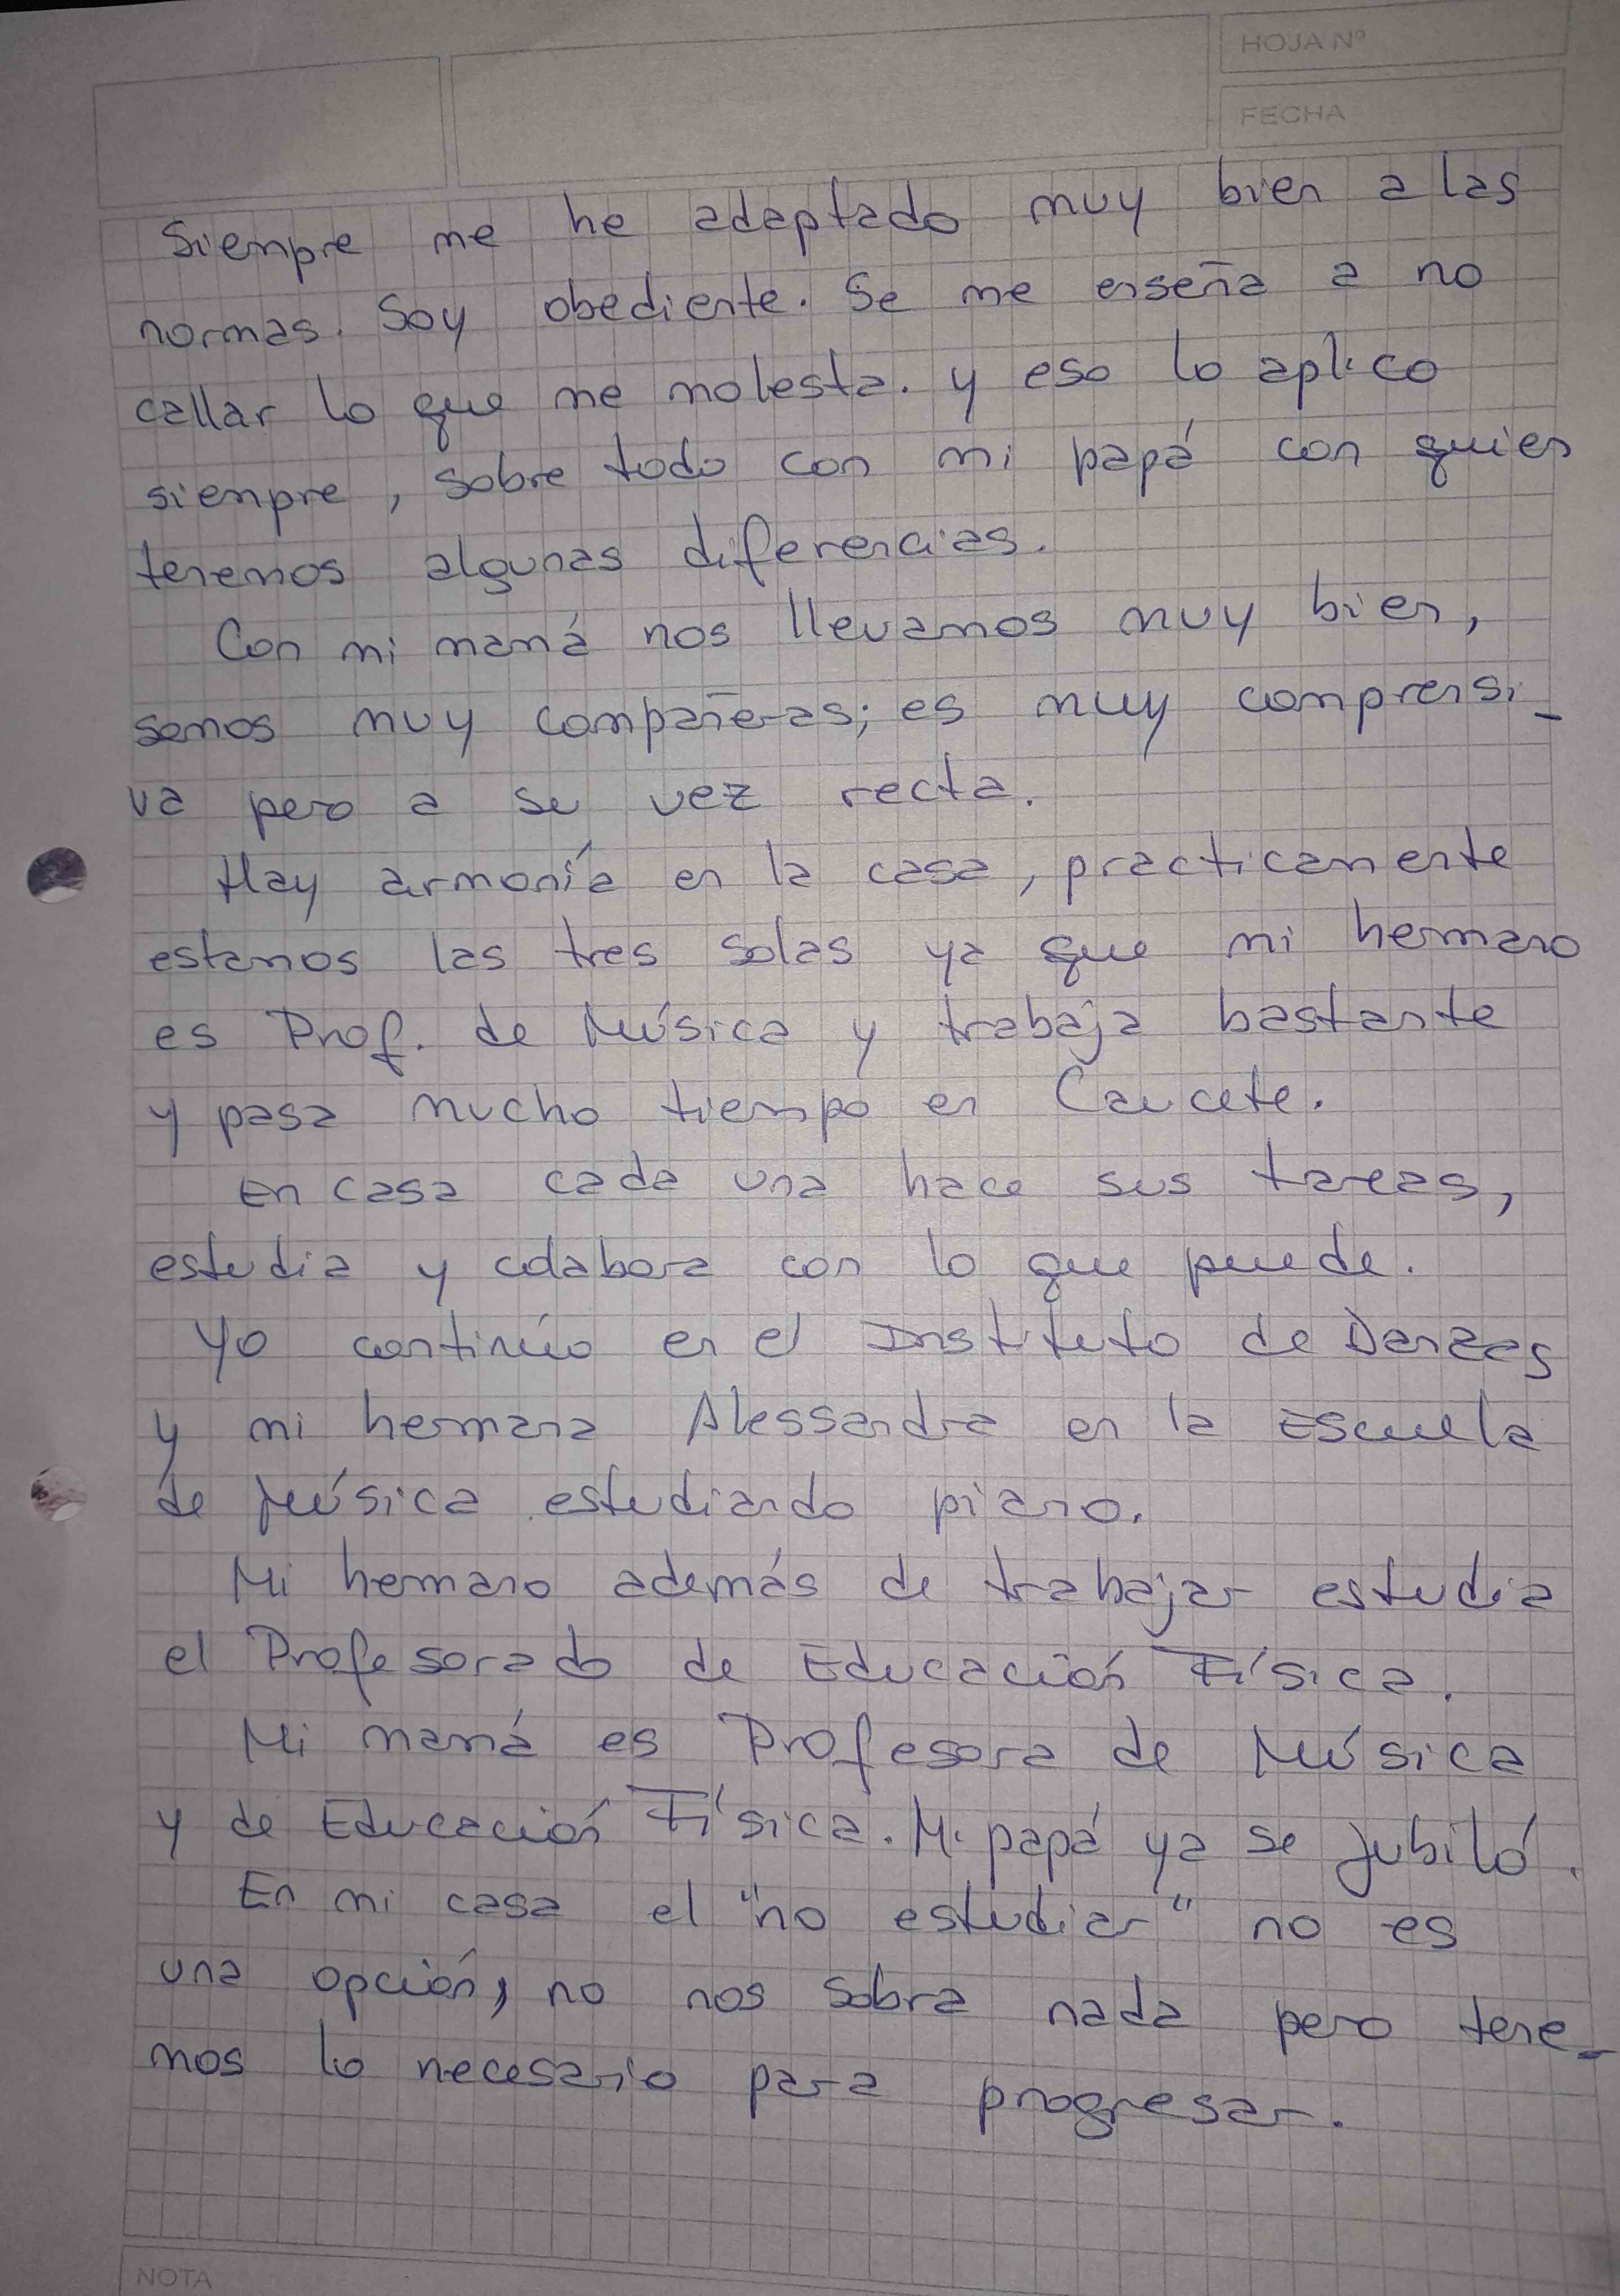 HOJA Nº
FECHA
Siempre me he adaptado muy bien a las
normas. Soy obediente. Se me enseña a no
callar lo que me molesta. y eso lo aplico
siempre, sobre todo con mi papá con quien
tenemos algunas diferencias.
Con mi mamá nos llevamos muy bien,
somos muy compañeras; es muy comprensi_
va pero a su vez recta.
Hay armonía en la casa, practicamente
estamos las tres solas ya que mi hermano
es Prof. de Música y trabaja bastante
y pasa mucho tiempo en Caucete.
En casa cada una hace sus tareas,
estudia y colabora con lo que puede.
Yo continúo en el Instituto de Danzas
y mi hermana Alessandra en la Escuela
de Música estudiando piano.
Mi hermano además de trabajar estudia
el Profesorado de Educación Física.
Mi mamá es Profesora de Música
y de Educación Física. Mi papá ya se jubiló.
En mi casa el "no estudiar" no es
una opción, no nos sobra nada pero tene_
mos lo necesario para progresar.
NOTA